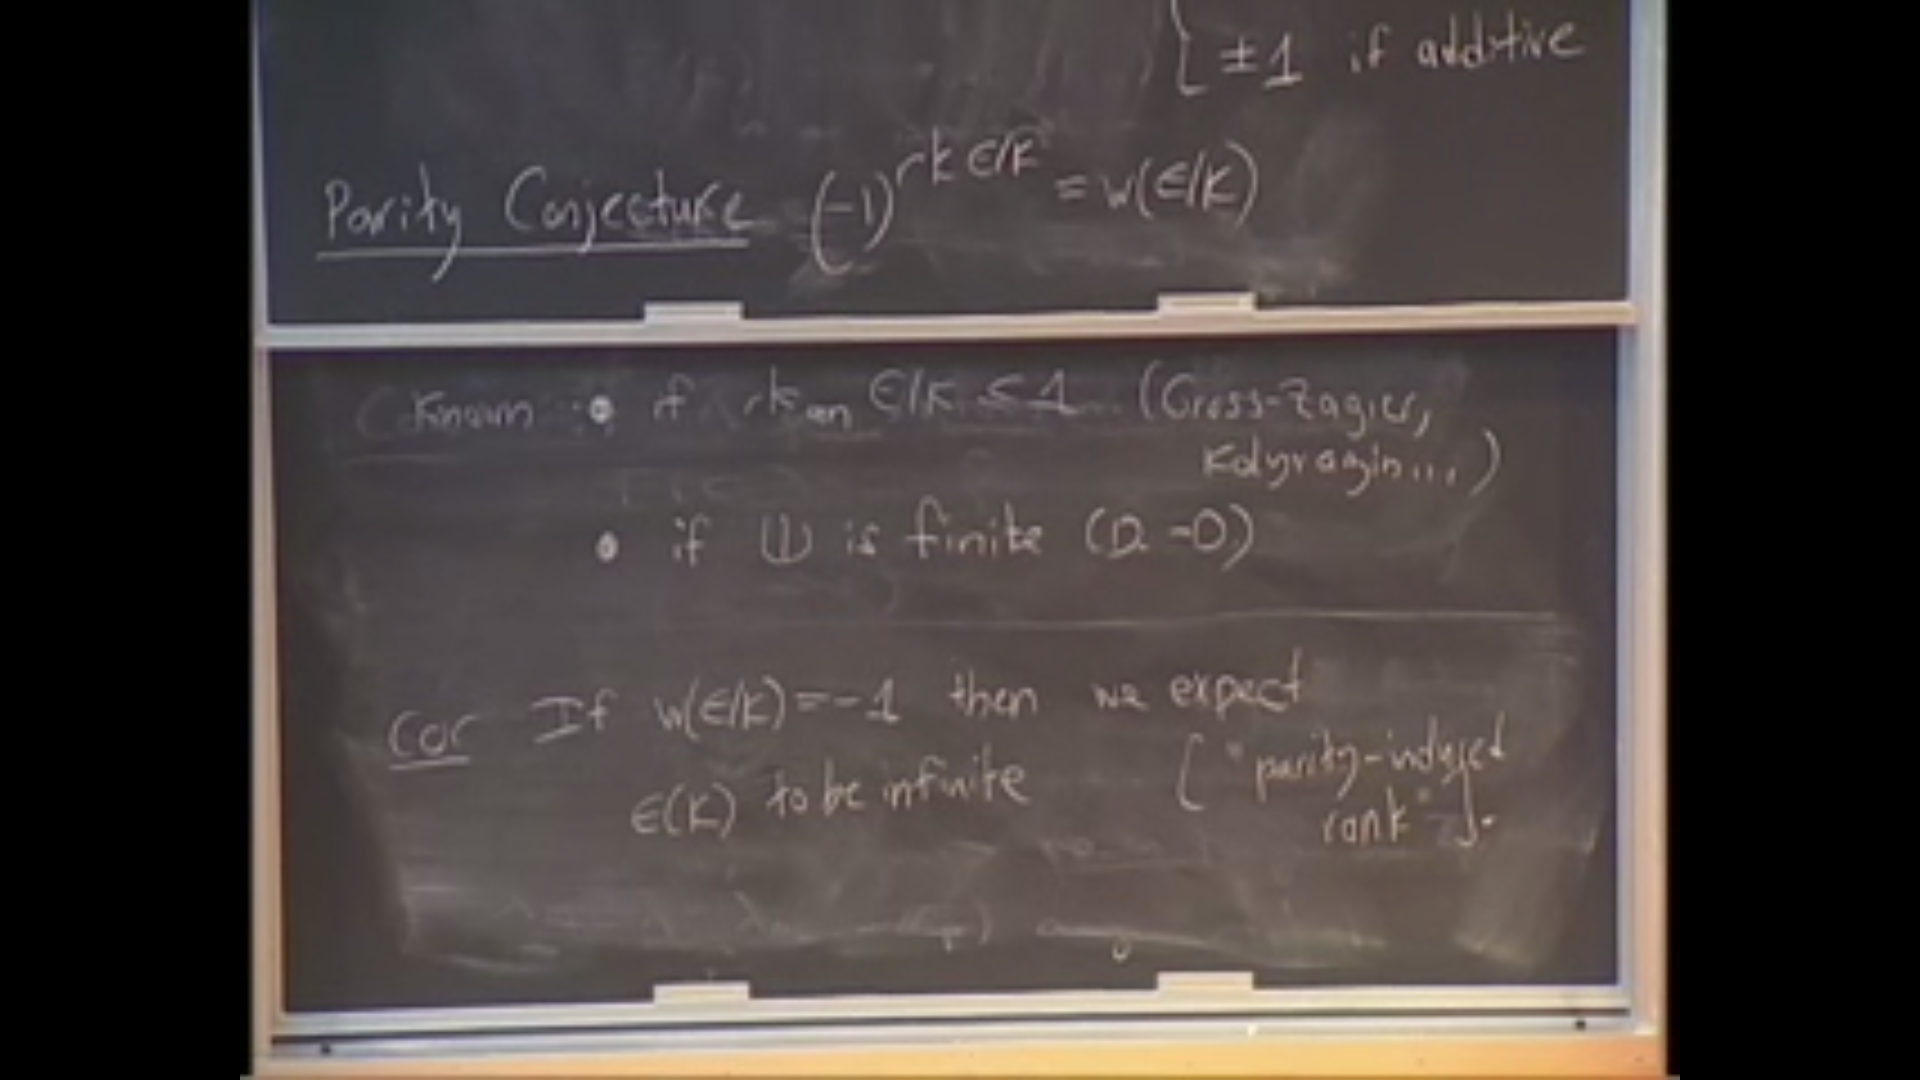 ± 1 if additive
Parity Conjecture (-1)^{rk E/K} = w(E/K)
Known : • if rk_an E/K ≤ 1 (Gross-Zagier,
Kolyvagin...)
• if Ш is finite (D.-D)
Cor If w(E/K) = -1 then we expect
E(K) to be infinite ["parity-induced
rank"].